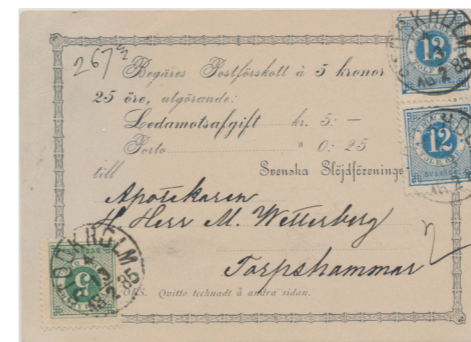 267 1/2
Begäres Postförskott à 5 kronor
25 öre, utgörande:
Ledamotsafgift kr. 5: —
Porto " 0: 25
till Svenska Slöjdförening
Apotekaren
H Herr M. Wetterberg
Torpshammar
OBS. Qvitto tecknadt å andra sidan.
12
12
5
STOCKHOLM
85